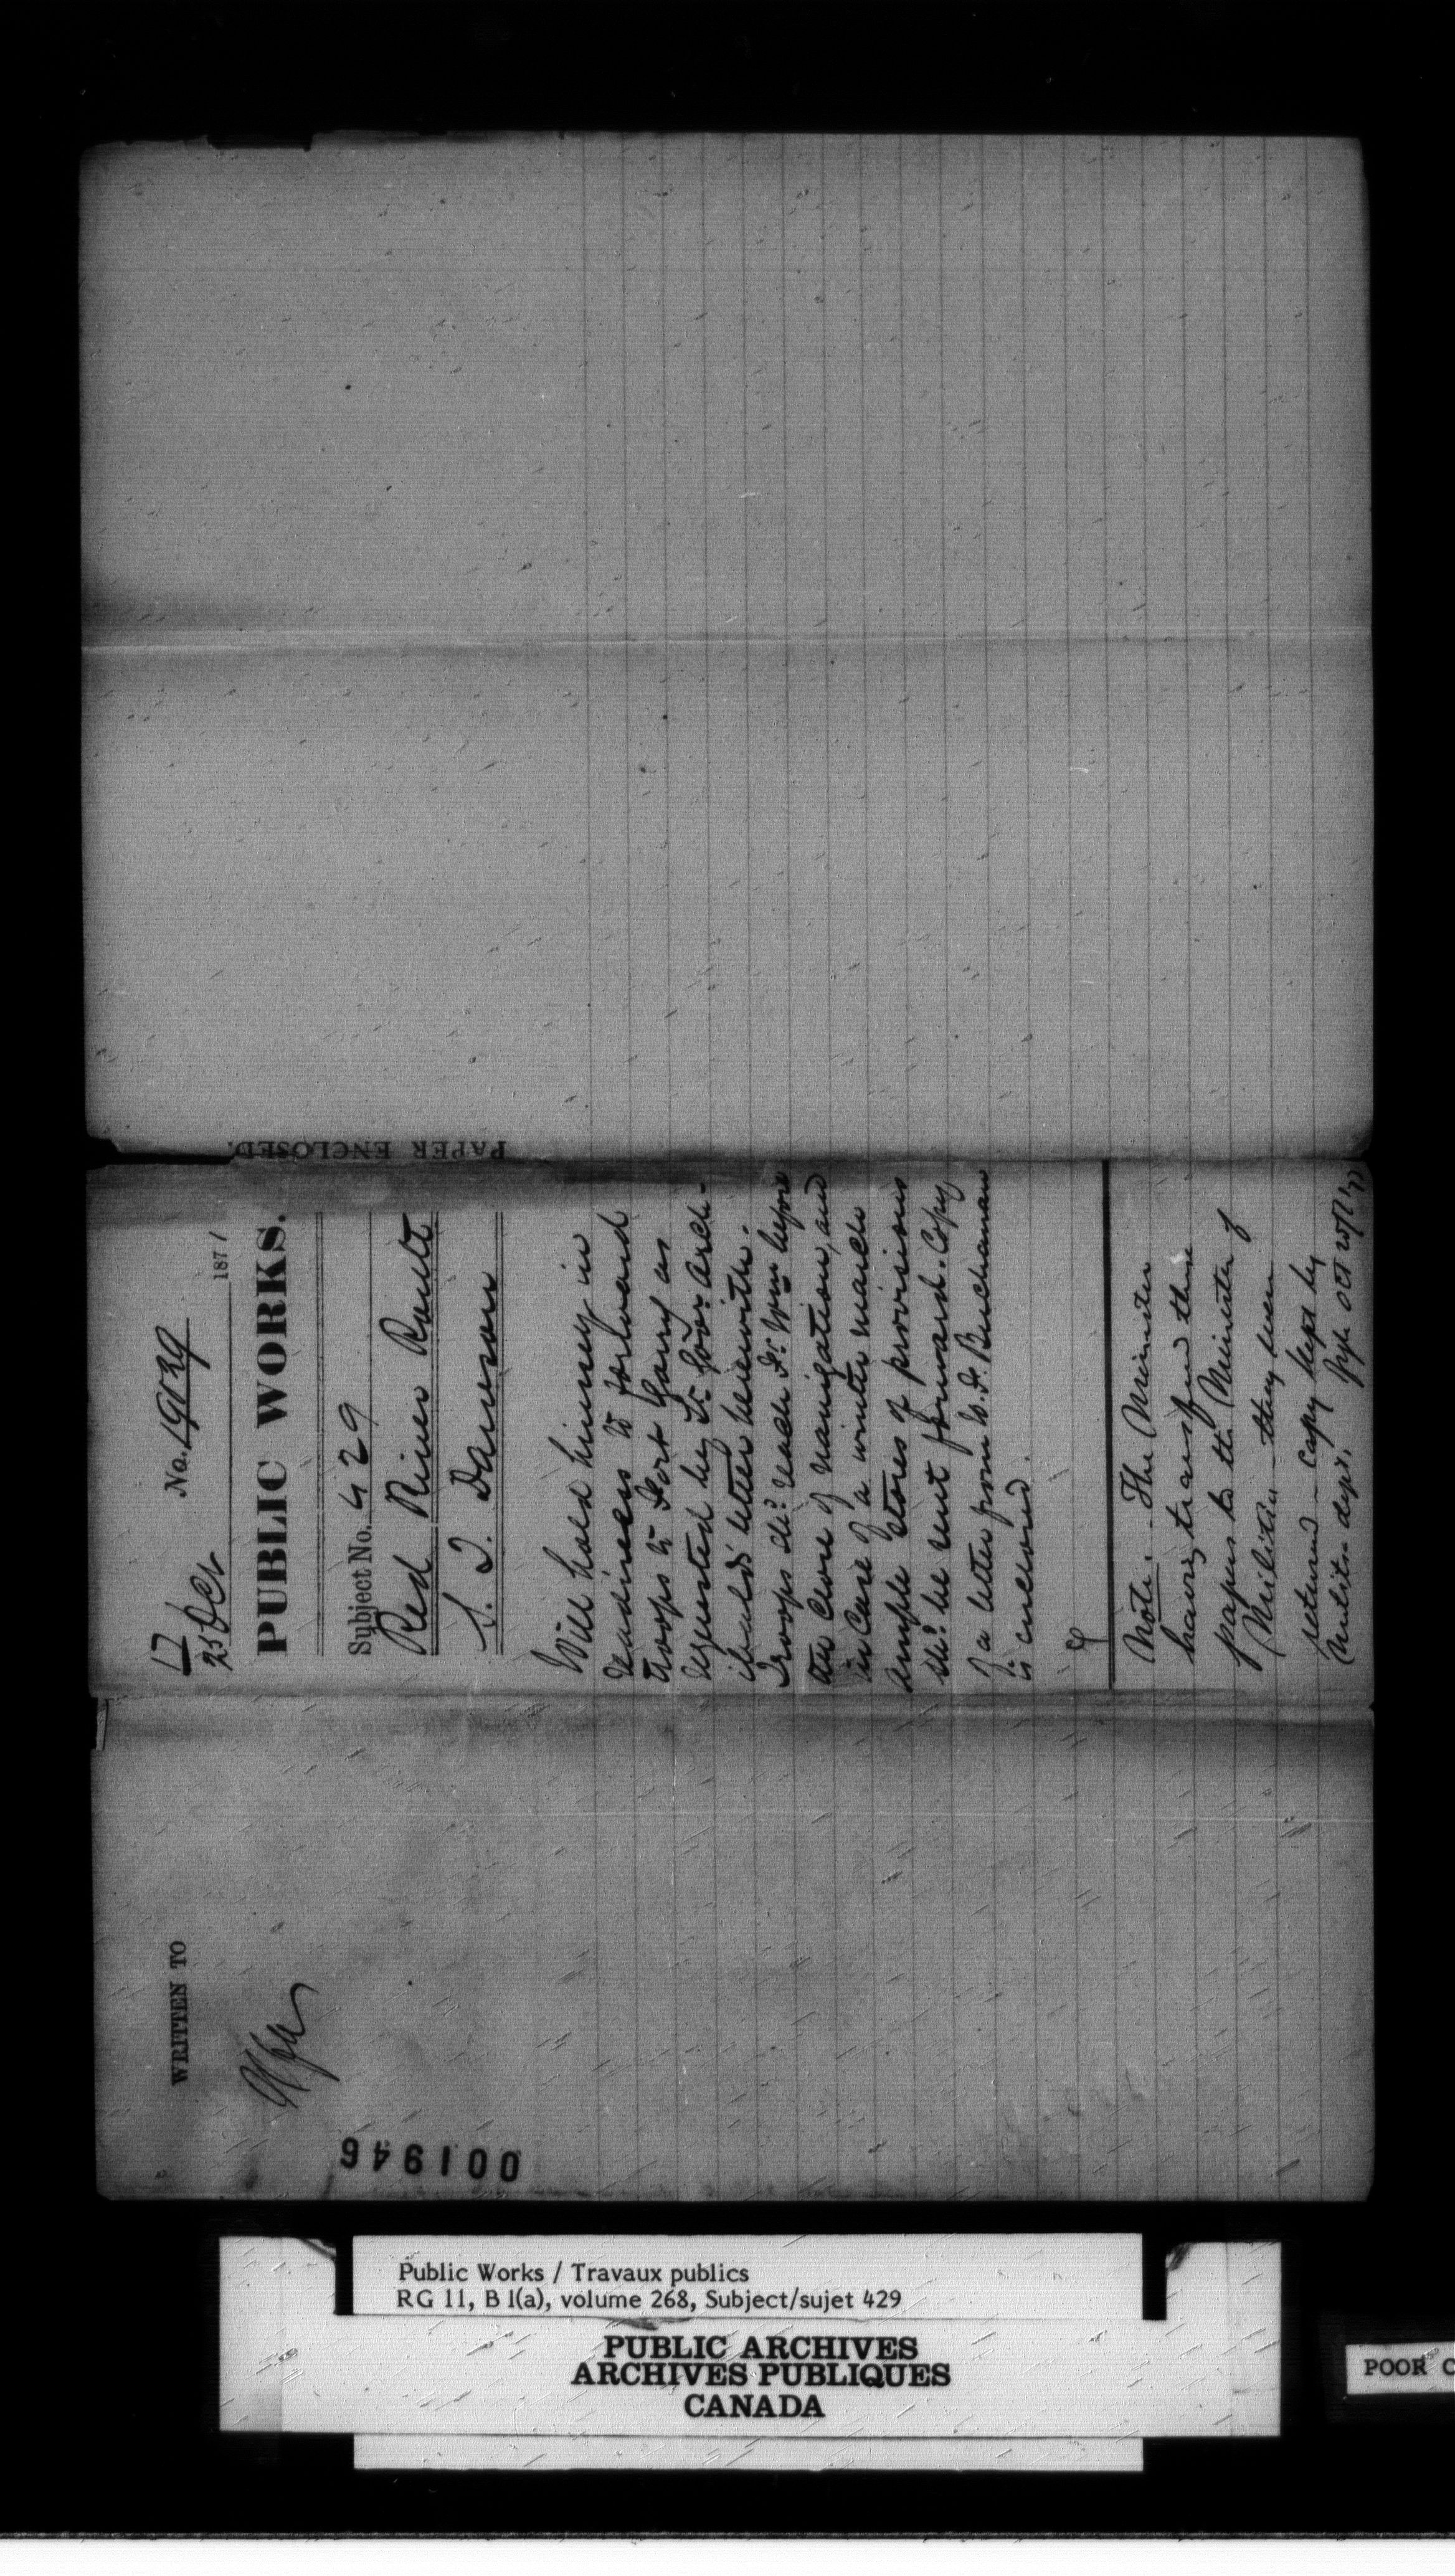 17
25 Oct No. 19839 1871
PUBLIC WORKS.
Subject No. 429
Red River Route
S. J. Dawson
Will hold himself in
readiness to forward
troops to Fort Garry as
requested by Lt. Govr. Arch-
ibald's letter herewith.
Troops shd. reach Ft. Wm before
the close of navigation, and
in case of a winter march
ample stores of provisions
shd. be sent forward. Copy
of a letter from W. F. Buchanan
is enclosed.
Note. The Minister
having transferred these
papers to the Minister of
Militia - they were
returned - copy kept by
Militia dept. Oct 25/71
PAPER ENCLOSED.
WRITTEN TO
001946
Public Works / Travaux publics
RG 11, B 1(a), volume 268, Subject/sujet 429
PUBLIC ARCHIVES
ARCHIVES PUBLIQUES
CANADA
POOR C